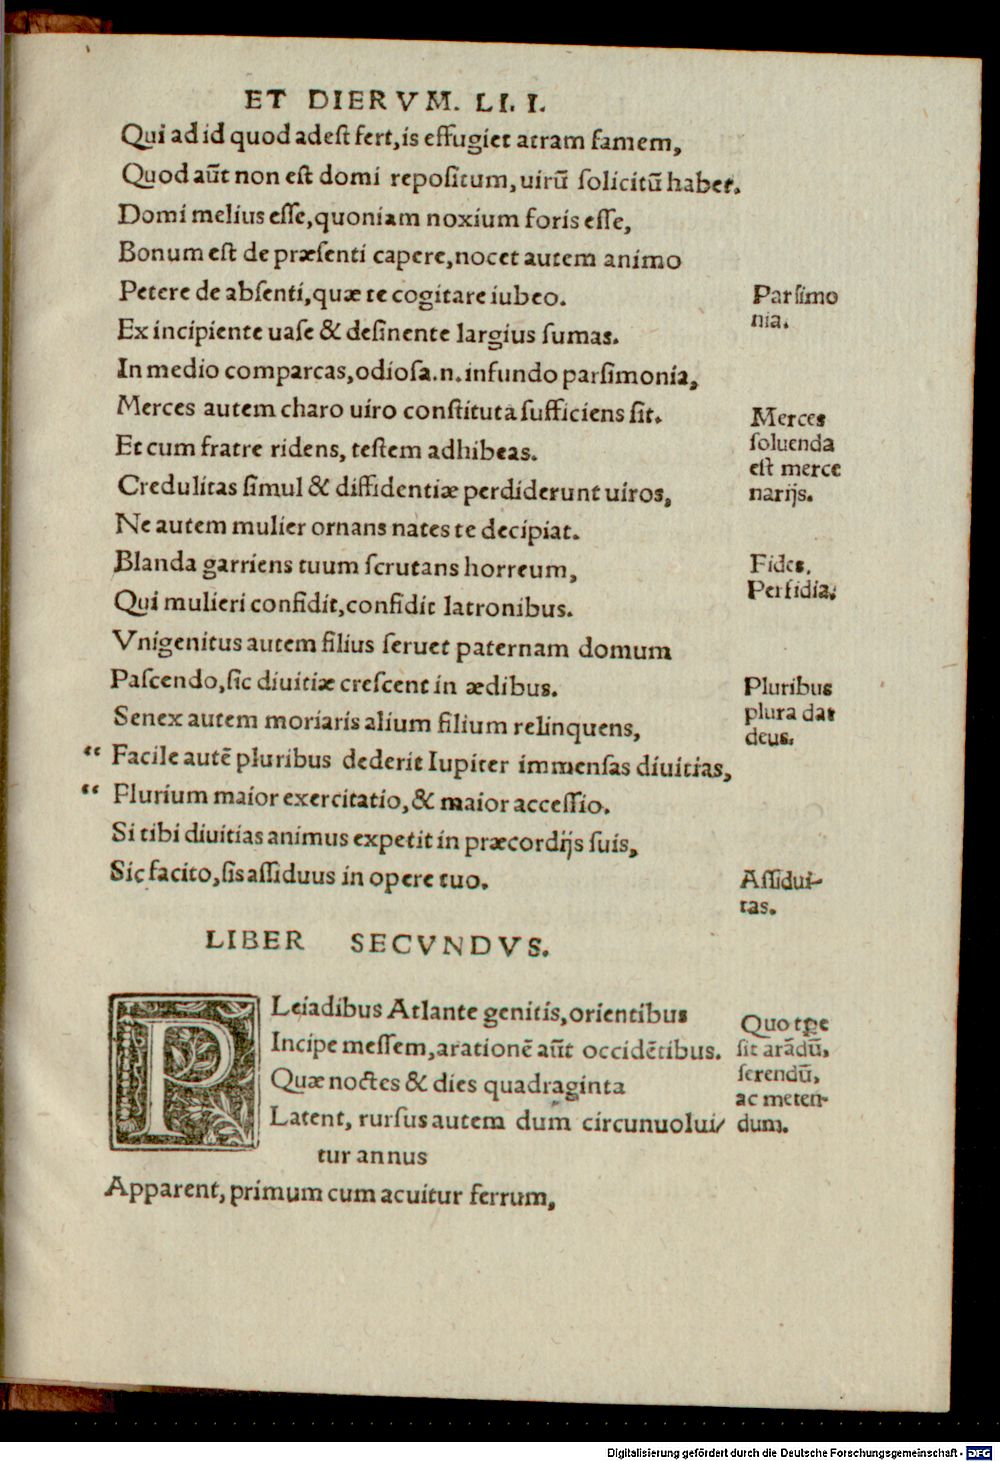 ET DIERVM. LI. I.
Qui ad id quod adest fert, is effugiet atram famem,
Quod aūt non est domi repositum, uirū solicitū habet.
Domi melius esse, quoniam noxium foris esse,
Bonum est de præsenti capere, nocet autem animo
Petere de absenti, quæ te cogitare iubeo.
Parsimo
nia.
Ex incipiente uase & desinente largius sumas.
In medio comparcas, odiosa.n.infundo parsimonia,
Merces autem charo uiro constituta sufficiens sit.
Merces
soluenda
est merce
narijs.
Et cum fratre ridens, testem adhibeas.
Credulitas simul & diffidentiæ perdiderunt uiros,
Ne autem mulier ornans nates te decipiat.
Blanda garriens tuum scrutans horreum,
Fides.
Perfidia.
Qui mulieri confidit, confidit latronibus.
Vnigenitus autem filius seruet paternam domum
Pascendo, sic diuitiæ crescent in ædibus.
Pluribus
plura dat
deus.
Senex autem moriaris alium filium relinquens,
“ Facile autē pluribus dederit Iupiter immensas diuitias,
“ Plurium maior exercitatio, & maior accessio.
Si tibi diuitias animus expetit in præcordijs suis,
Sic facito, sis assiduus in opere tuo.
Assidui-
tas.
LIBER SECVNDVS.
PLeiadibus Atlante genitis, orientibus
Incipe messem, arationē aūt occidētibus.
Quæ noctes & dies quadraginta
Latent, rursus autem dum circunuolui/
tur annus
Quo tpe
sit arādū,
serendū,
ac meten-
dum.
Apparent, primum cum acuitur ferrum,
Digitalisierung gefördert durch die Deutsche Forschungsgemeinschaft - DFG